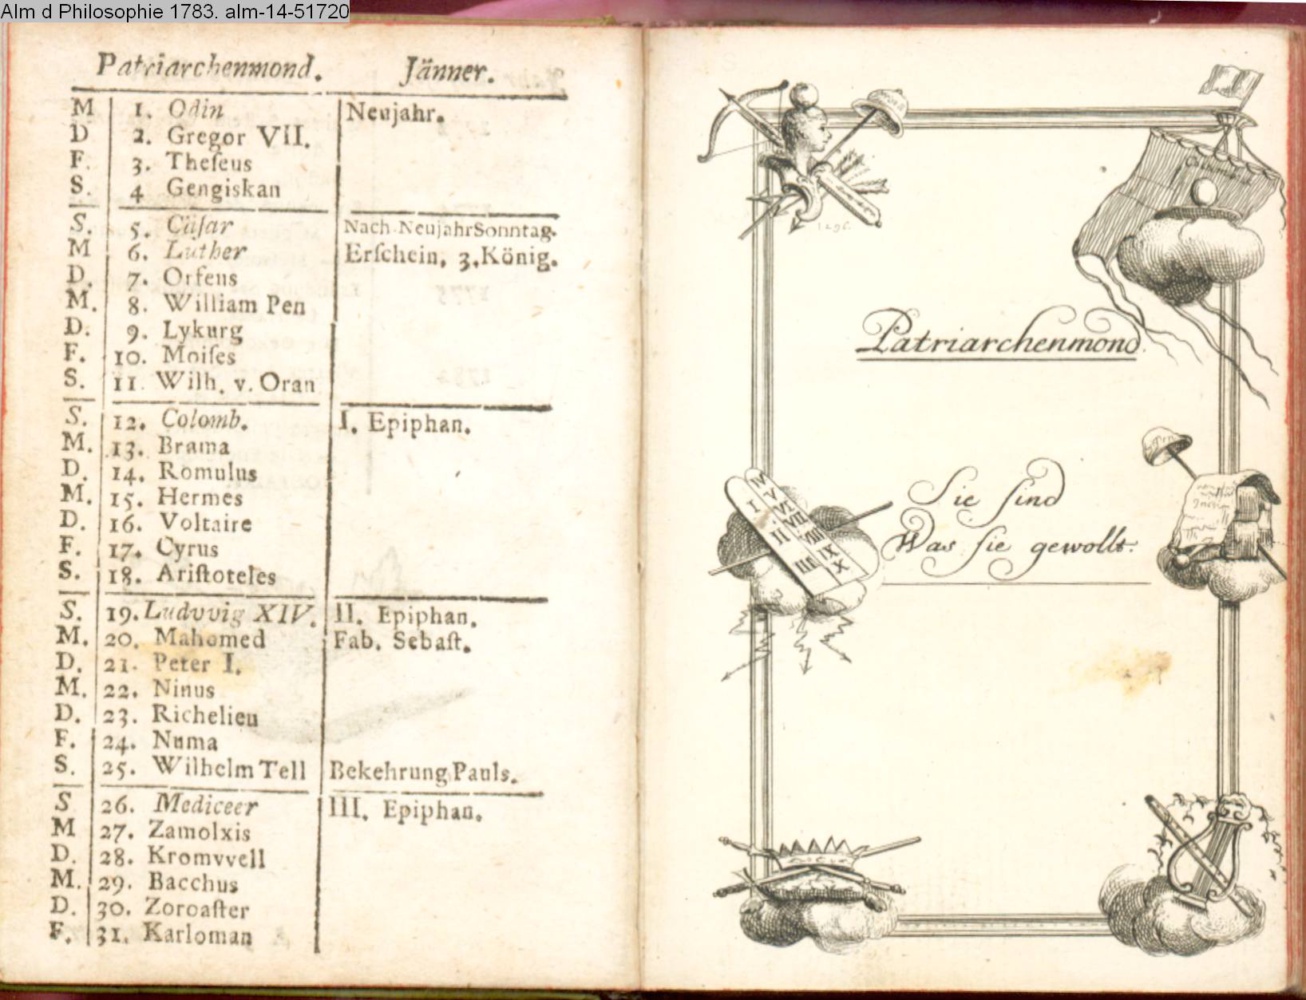 Alm d Philosophie 1783. alm-14-51720
Patriarchenmond. Jänner.
M 1. Odin Neujahr.
D 2. Gregor VII.
F. 3. Theſeus
S. 4 Gengiskan
S. 5. Cäſar Nach NeujahrSonntag.
M 6. Luther Erſchein, 3. König.
D. 7. Orfeus
M. 8. William Pen
D. 9. Lykurg
F. 10. Moiſes
S. 11. Wilh. v. Oran
S. 12. Colomb. I. Epiphan.
M. 13. Brama
D. 14. Romulus
M. 15. Hermes
D. 16. Voltaire
F. 17. Cyrus
S. 18. Ariſtoteles
S. 19. Ludvvig XIV. II. Epiphan.
M. 20. Mahomed Fab. Sebaſt.
D. 21. Peter I.
M. 22. Ninus
D. 23. Richelieu
F. 24. Numa
S. 25. Wilhelm Tell Bekehrung Pauls.
S 26. Mediceer III. Epiphan.
M 27. Zamolxis
D. 28. Kromvvell
M. 29. Bacchus
D. 30. Zoroaſter
F. 31. Karloman
Patriarchenmond.
Sie ſind
Was ſie gewollt.
I II III IV V VI VII VIII IX X